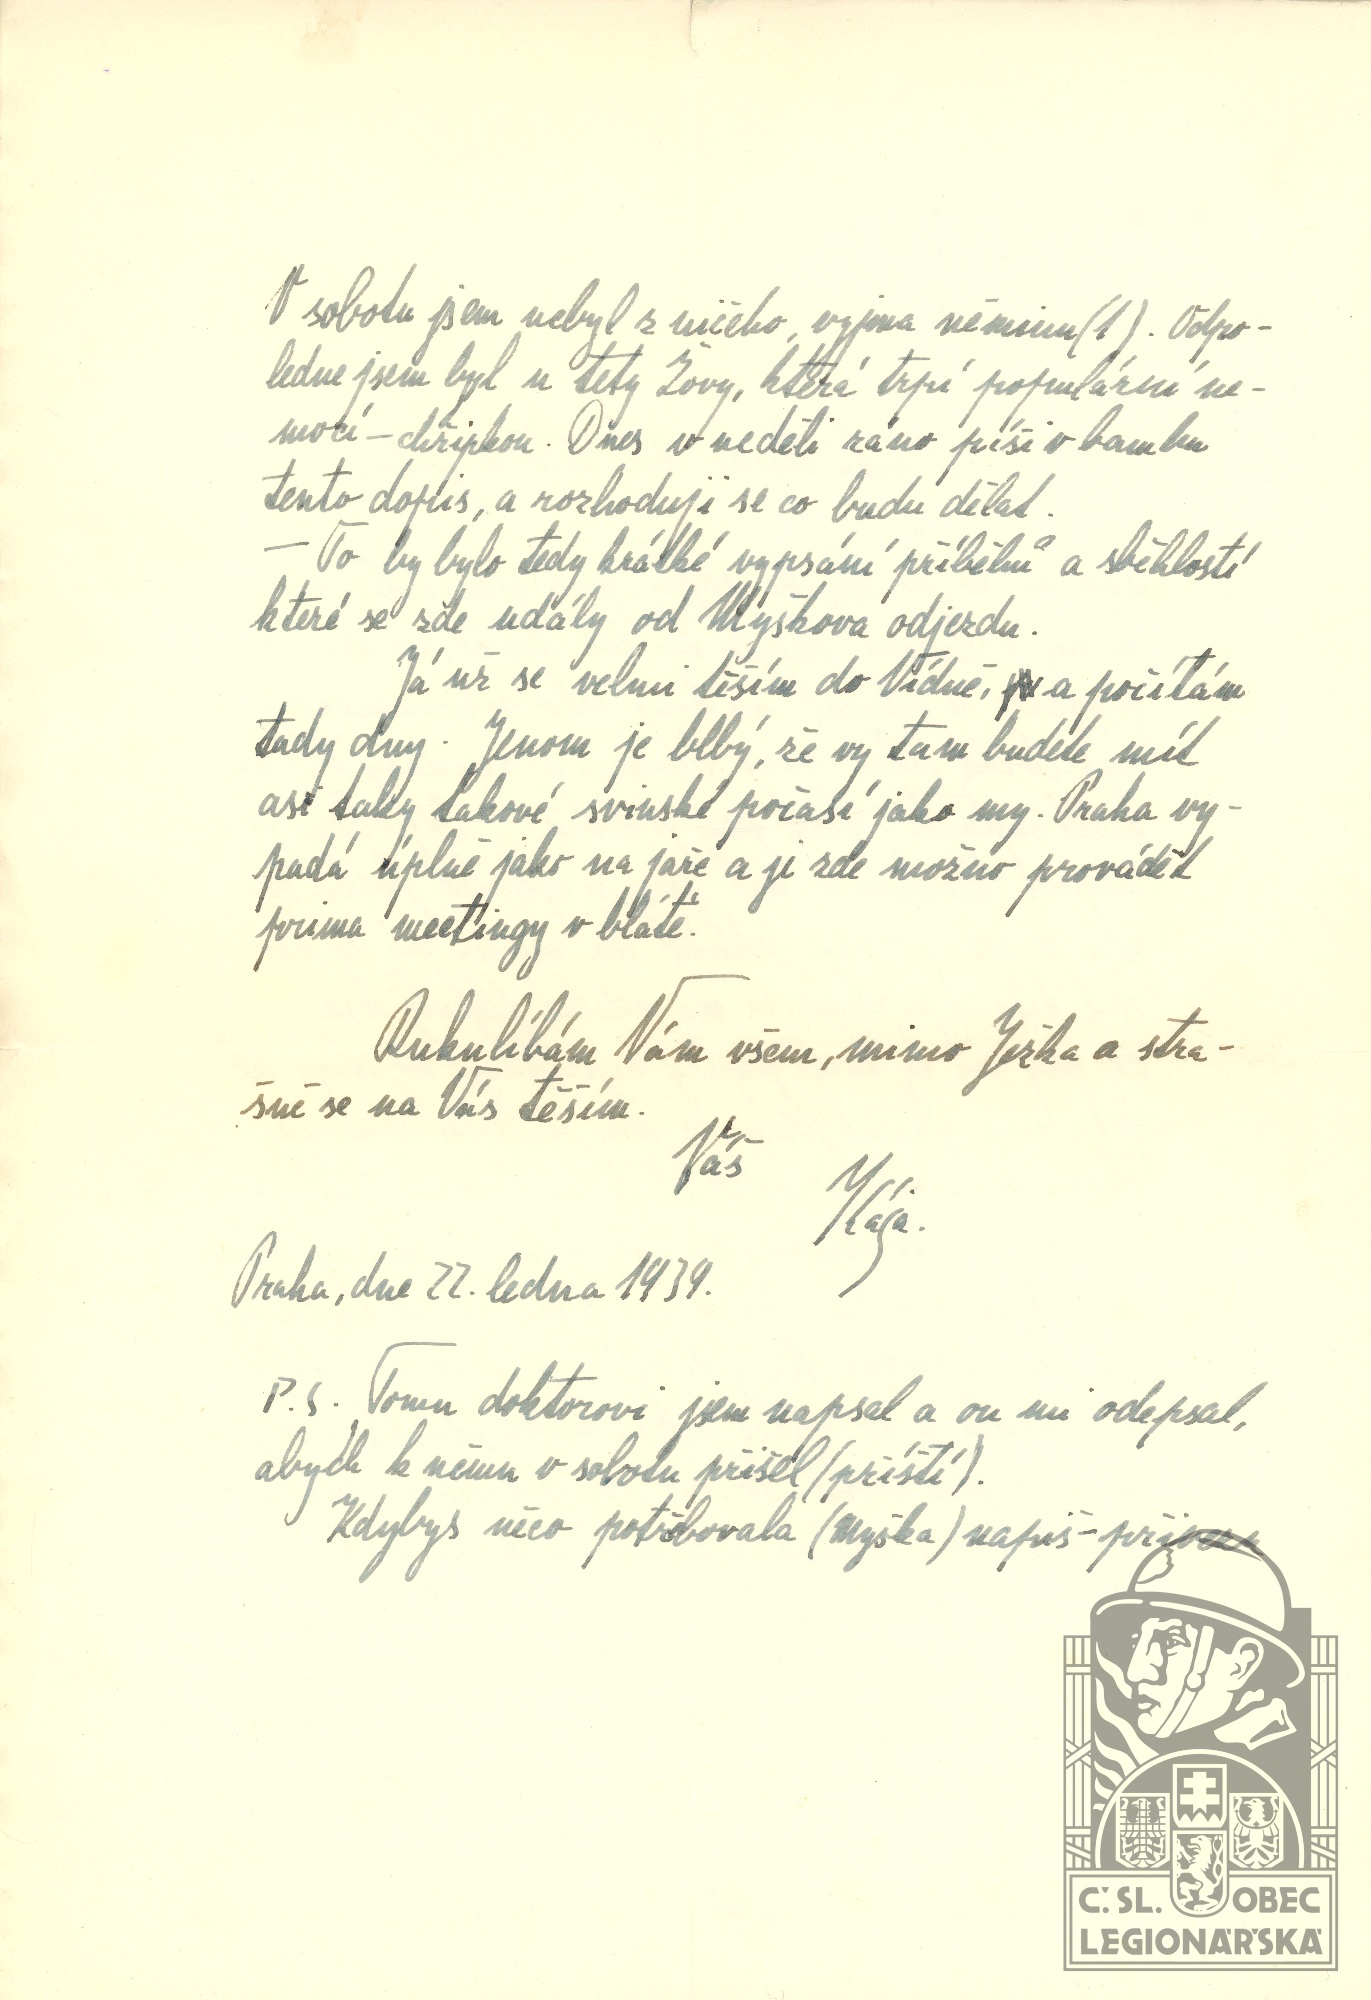 V sobotu jsem nebyl z ničeho, vyjma němčinu (1). Odpo-
ledne jsem byl u tety Žovy, která trpí populární ne-
mocí – chřipkou. Dnes v neděli ráno píši v banku
tento dopis, a rozhoduji se co budu dělat.
– To by bylo tedy krátké vypsání příběhů a sběhlostí
které se zde udály od Myškova odjezdu.
Já už se velmi těším do Vídně, a počítám
tady dny. Jenom je blbý, že vy tam budete mít
asi taky takové svinské počasí jako my. Praha vy-
padá úplně jako na jaře a ji zde možno provádět
prima meetingy v blátě.
Rukulíbám Vám všem, mimo Ježka a stra-
šně se na Vás těším.
Váš
Kája.
Praha, dne 22. ledna 1939.
P.S. Tomu doktorovi jsem napsal a on mi odepsal,
abych k němu v sobotu přišel (příští).
Kdybys něco potřebovala (myška) napiš – přivezu
Č. SL. OBEC
LEGIONÁŘSKÁ